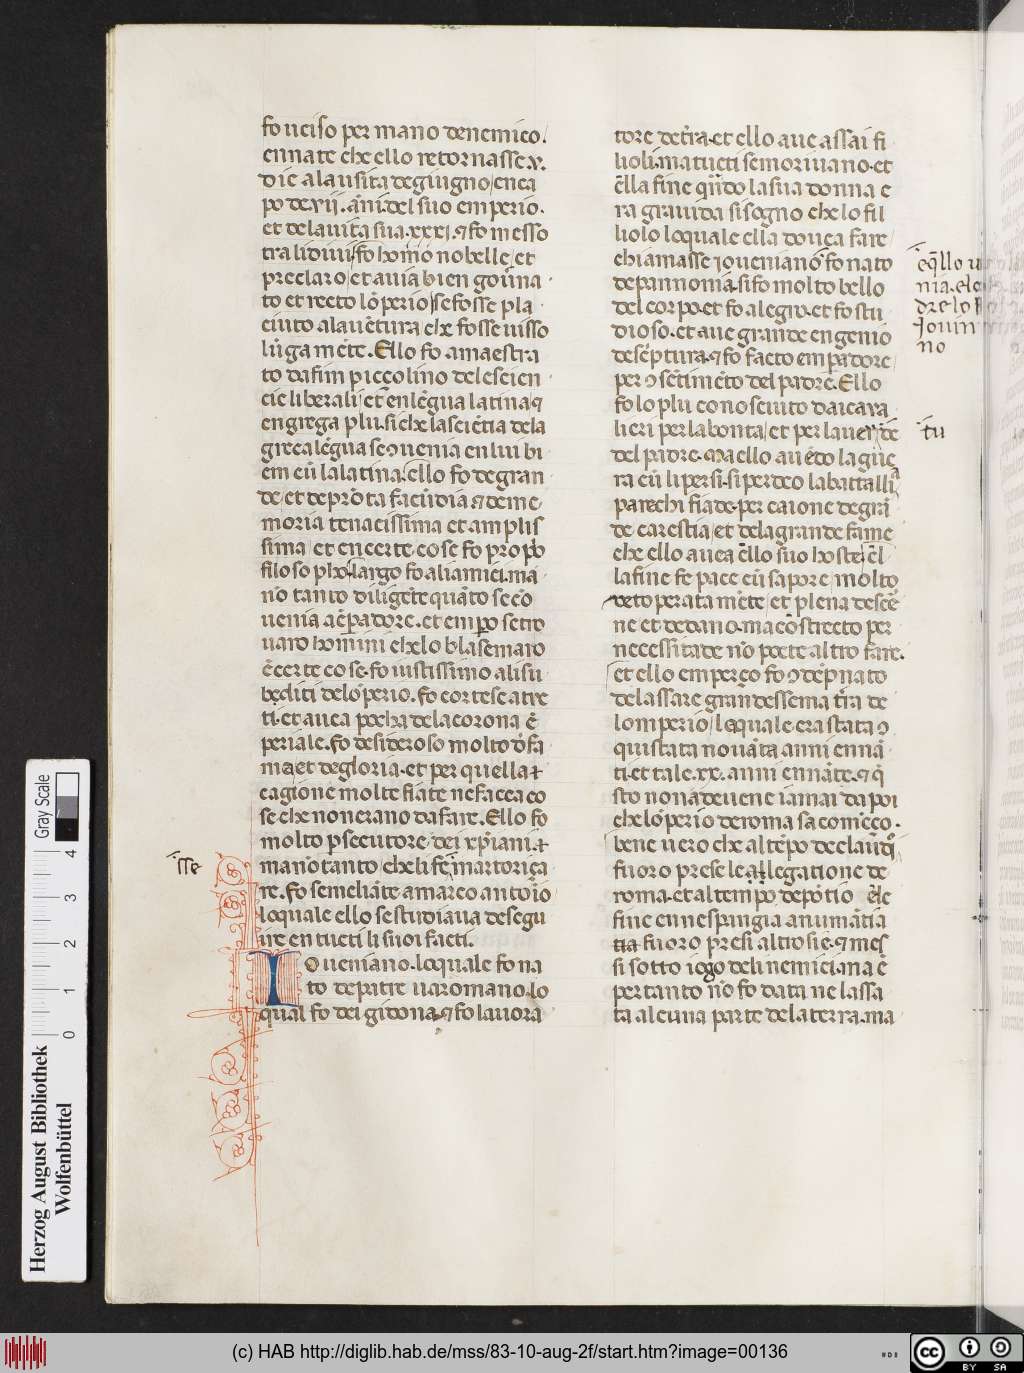 fo uciso per mano de nemico.
ennate che ello retornasse.x.
die a la usita de giugno en ca
po de xii. ãni. del suo emperio.
et de la vita sua. xxxi. ⁊ fo messo
tra li divi fo homo nobelle et
preclaro et avia bien gov̄na
to et recto lo ̄perio se fosse pla
ciuto a la uētura che fosse uisso
lūga mēte. Ello fo amaestra
to da fim piccolino de le scien
cie liberali et ēn lēgua latina ⁊
en grega plu. si che la sciētia de la
greca lēgua se ɔuenia en lui bi
em cū la latina. Ello fo de gran
de et de prōta facūdia ⁊ de me
moria tenacissima et amplis
sima et en certe cose fo propo
filosopho largo fo ali amici. ma
nō tanto diligēte quāto se cō
uenia a ēpadore. et empo se tro
uaro homini che lo blasemaro
ē certe cose. fo iustissimo ali su
bediti de lo ̄perio. fo cortese a tre
ti. et auea pocha de la corona ē
periale. fo desideroso molto d fa
ma et de gloria. et per quella
cagione molte fiate ne facea co
se che non erano da fare. Ello fo
molto psecutore dei xp̄iani.
isse
manō tanto che li fē martoriça
re. fo semeliāte a marco antōio
loquale ello se studiaua de segu
ire en tucti li suoi facti.
Ioueniano. loquale fo na
to de patre uaromano. lo
qual fo dei gidona. ⁊ fo lauora
tore de tr̄a. et ello aue assai fi
lioli. ma tucti se moriuano. et
ēlla fine qn̄do la sua donna e
ra grauida si sogno che lo fil
liolo loquale ella douea fare
chiamasse ioueniano fo nato
de pannonia. si fo molto bello
del corpo. et fo alegro. et fo stu
dioso. et aue grande engenio
de sc̄ptura. ⁊ fo facto empadore
per ɔsētimēto del padre. Ello
fo lo plu conosciuto da i cava
lieri per la bonta et per la de
tu
del padre. Ma ello auēdo la gue
ra cū li persi. si perdeo la battalli
parechi fiade. per caione de grā
de carestia et de la grande fame
che ello auea ēllo suo hoste ēl
la fine fe pace cū sapore molto
uetoperata mēte et plena de scē
ne et de dano. ma cōstrecto per
necessitade nō poete altro fare.
et ello emperço fo ɔdep̄nato
de lassare grandessema tr̄a de
lomperio loquale era stata ɔ
quistata nouāta anni ennā
ti. et tale. xx. anni ennāte. ⁊ q̄
sto nona deuene iamai da poi
che lo ̄perio de roma sa comēço.
bene uero che al tēpo de claudi
fuoro prese le allegatione de
roma. et al tempo de pōtio ēle
fine en nespingia a numātia
tia fuoro presi altrosie. ⁊ mes
si sotto iogo de li nemici. ma ē
pertanto nō fo data ne lassa
ta alcuna parte de la terra. ma
eq̄llo
nia. ele
dre lo
Jouin
no
Herzog August Bibliothek
Wolfenbüttel
Gray Scale
0 1 2 3 4
(c) HAB http://diglib.hab.de/mss/83-10-aug-2f/start.htm?image=00136
cc
BY SA